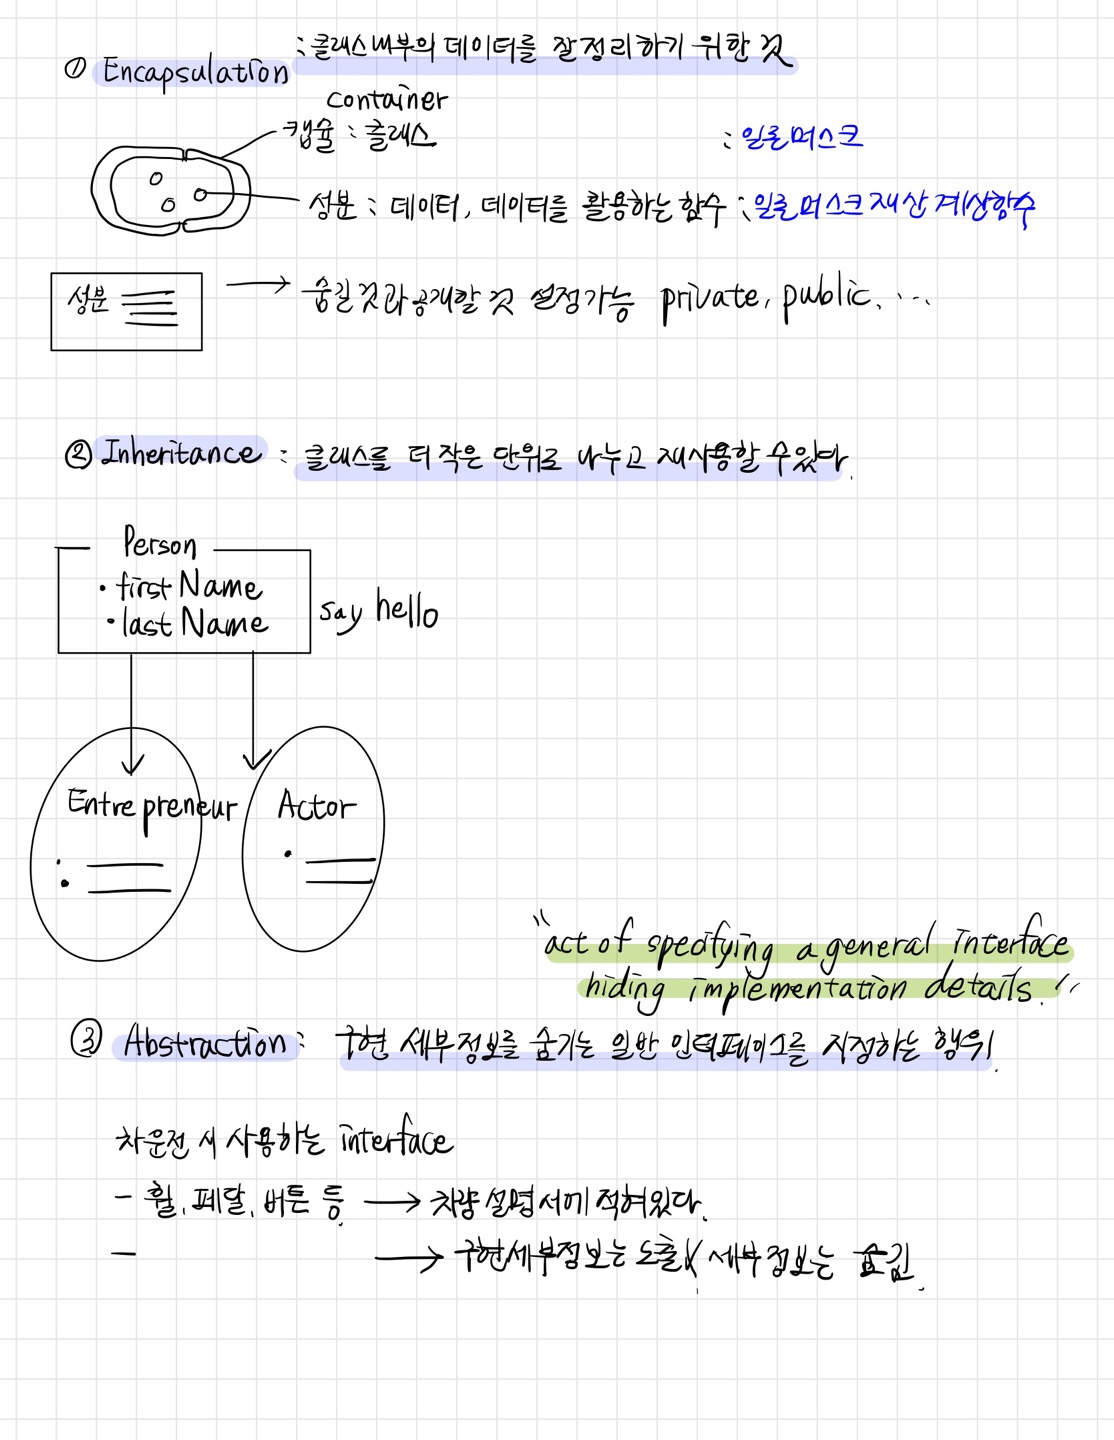 : 클래스 내부의 데이터를 잘 정리하기 위한 것
① Encapsulation
container
캡슐 : 클래스 : 일론머스크
성분 : 데이터, 데이터를 활용하는 함수 : 일론 머스크 재산 계산함수
성분 → 숨길 것과 공개할 것 설정가능 private, public, ...
② Inheritance : 클래스를 더 작은 단위로 나누고 재사용할 수 있다.
Person
• first Name
• last Name
say hello
Entrepreneur
Actor
"act of specifying a general interface
hiding implementation details."
③ Abstraction : 구현 세부정보를 숨기는 일반 인터페이스를 지정하는 행위.
차 운전 시 사용하는 interface
- 휠, 페달, 버튼 등 → 차량 설명서에 적혀있다.
- → 구현세부정보는 노출X 세부정보는 숨김.